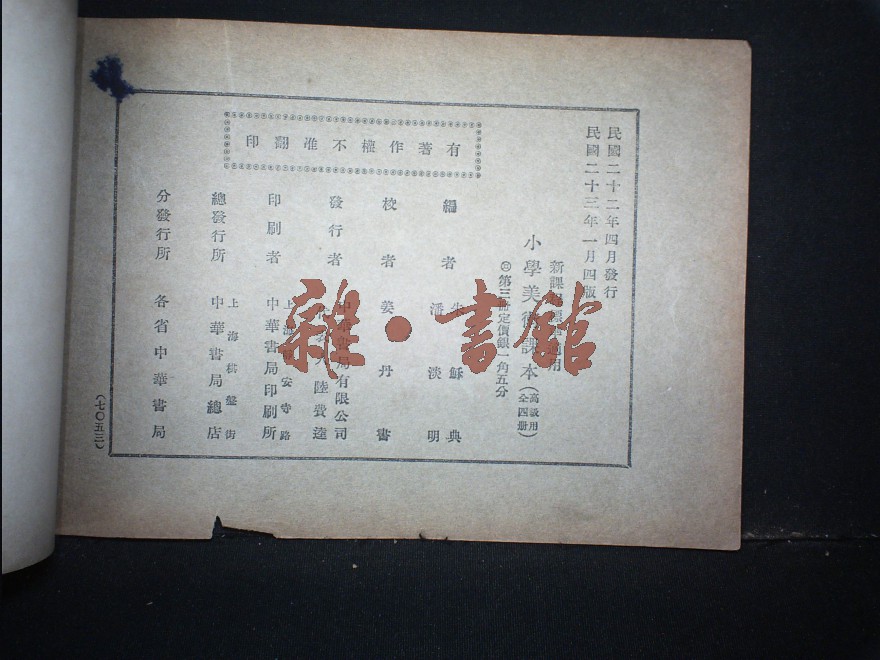 民國二十二年四月發行
民國二十三年一月四版
新課
適用
小學美術課本
(高級用
全四册)
第三冊定價銀一角五分
有著作權不准翻印
編者
朱穌典
潘淡明
校者
姜丹書
發行者
中華書局有限公司
陸費逵
印刷者
上海靜安寺路
中華書局印刷所
總發行所
上海棋盤街
中華書局總店
分發行所
各省中華書局
(七〇五三)
雜·書館